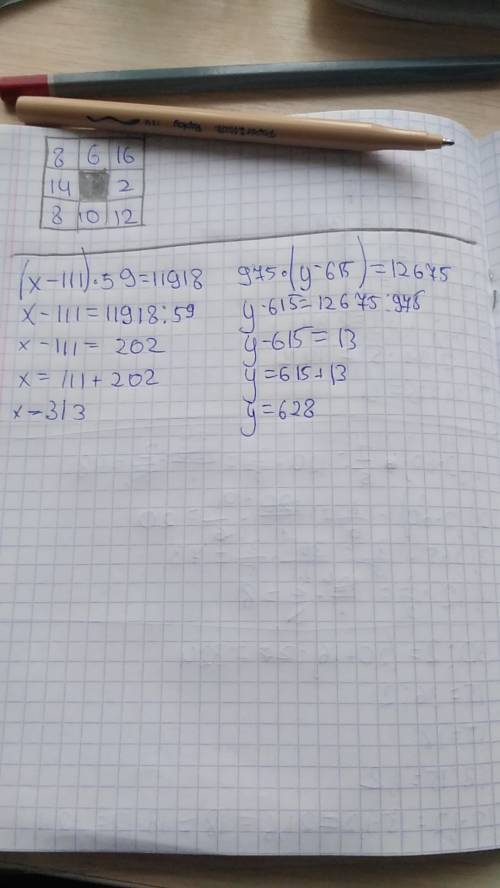 8 6 16
14 2
8 10 12
(x-111)·59=11918
x-111=11918:59
x-111= 202
x= 111+202
x=313
975·(y-615)=12675
y-615=12675:975
y-615=13
y=615+13
y=628